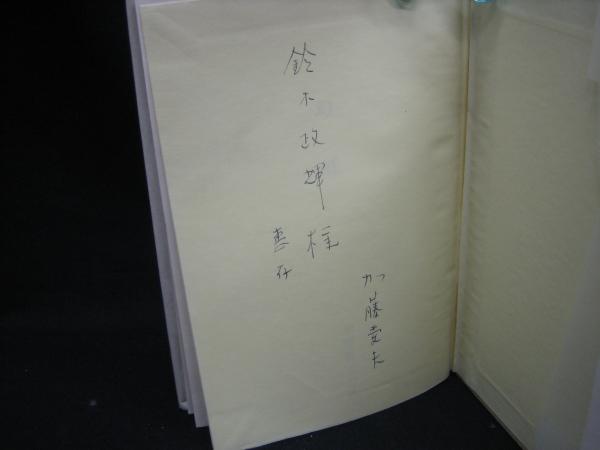 鈴木政輝様
恵存
加藤愛夫